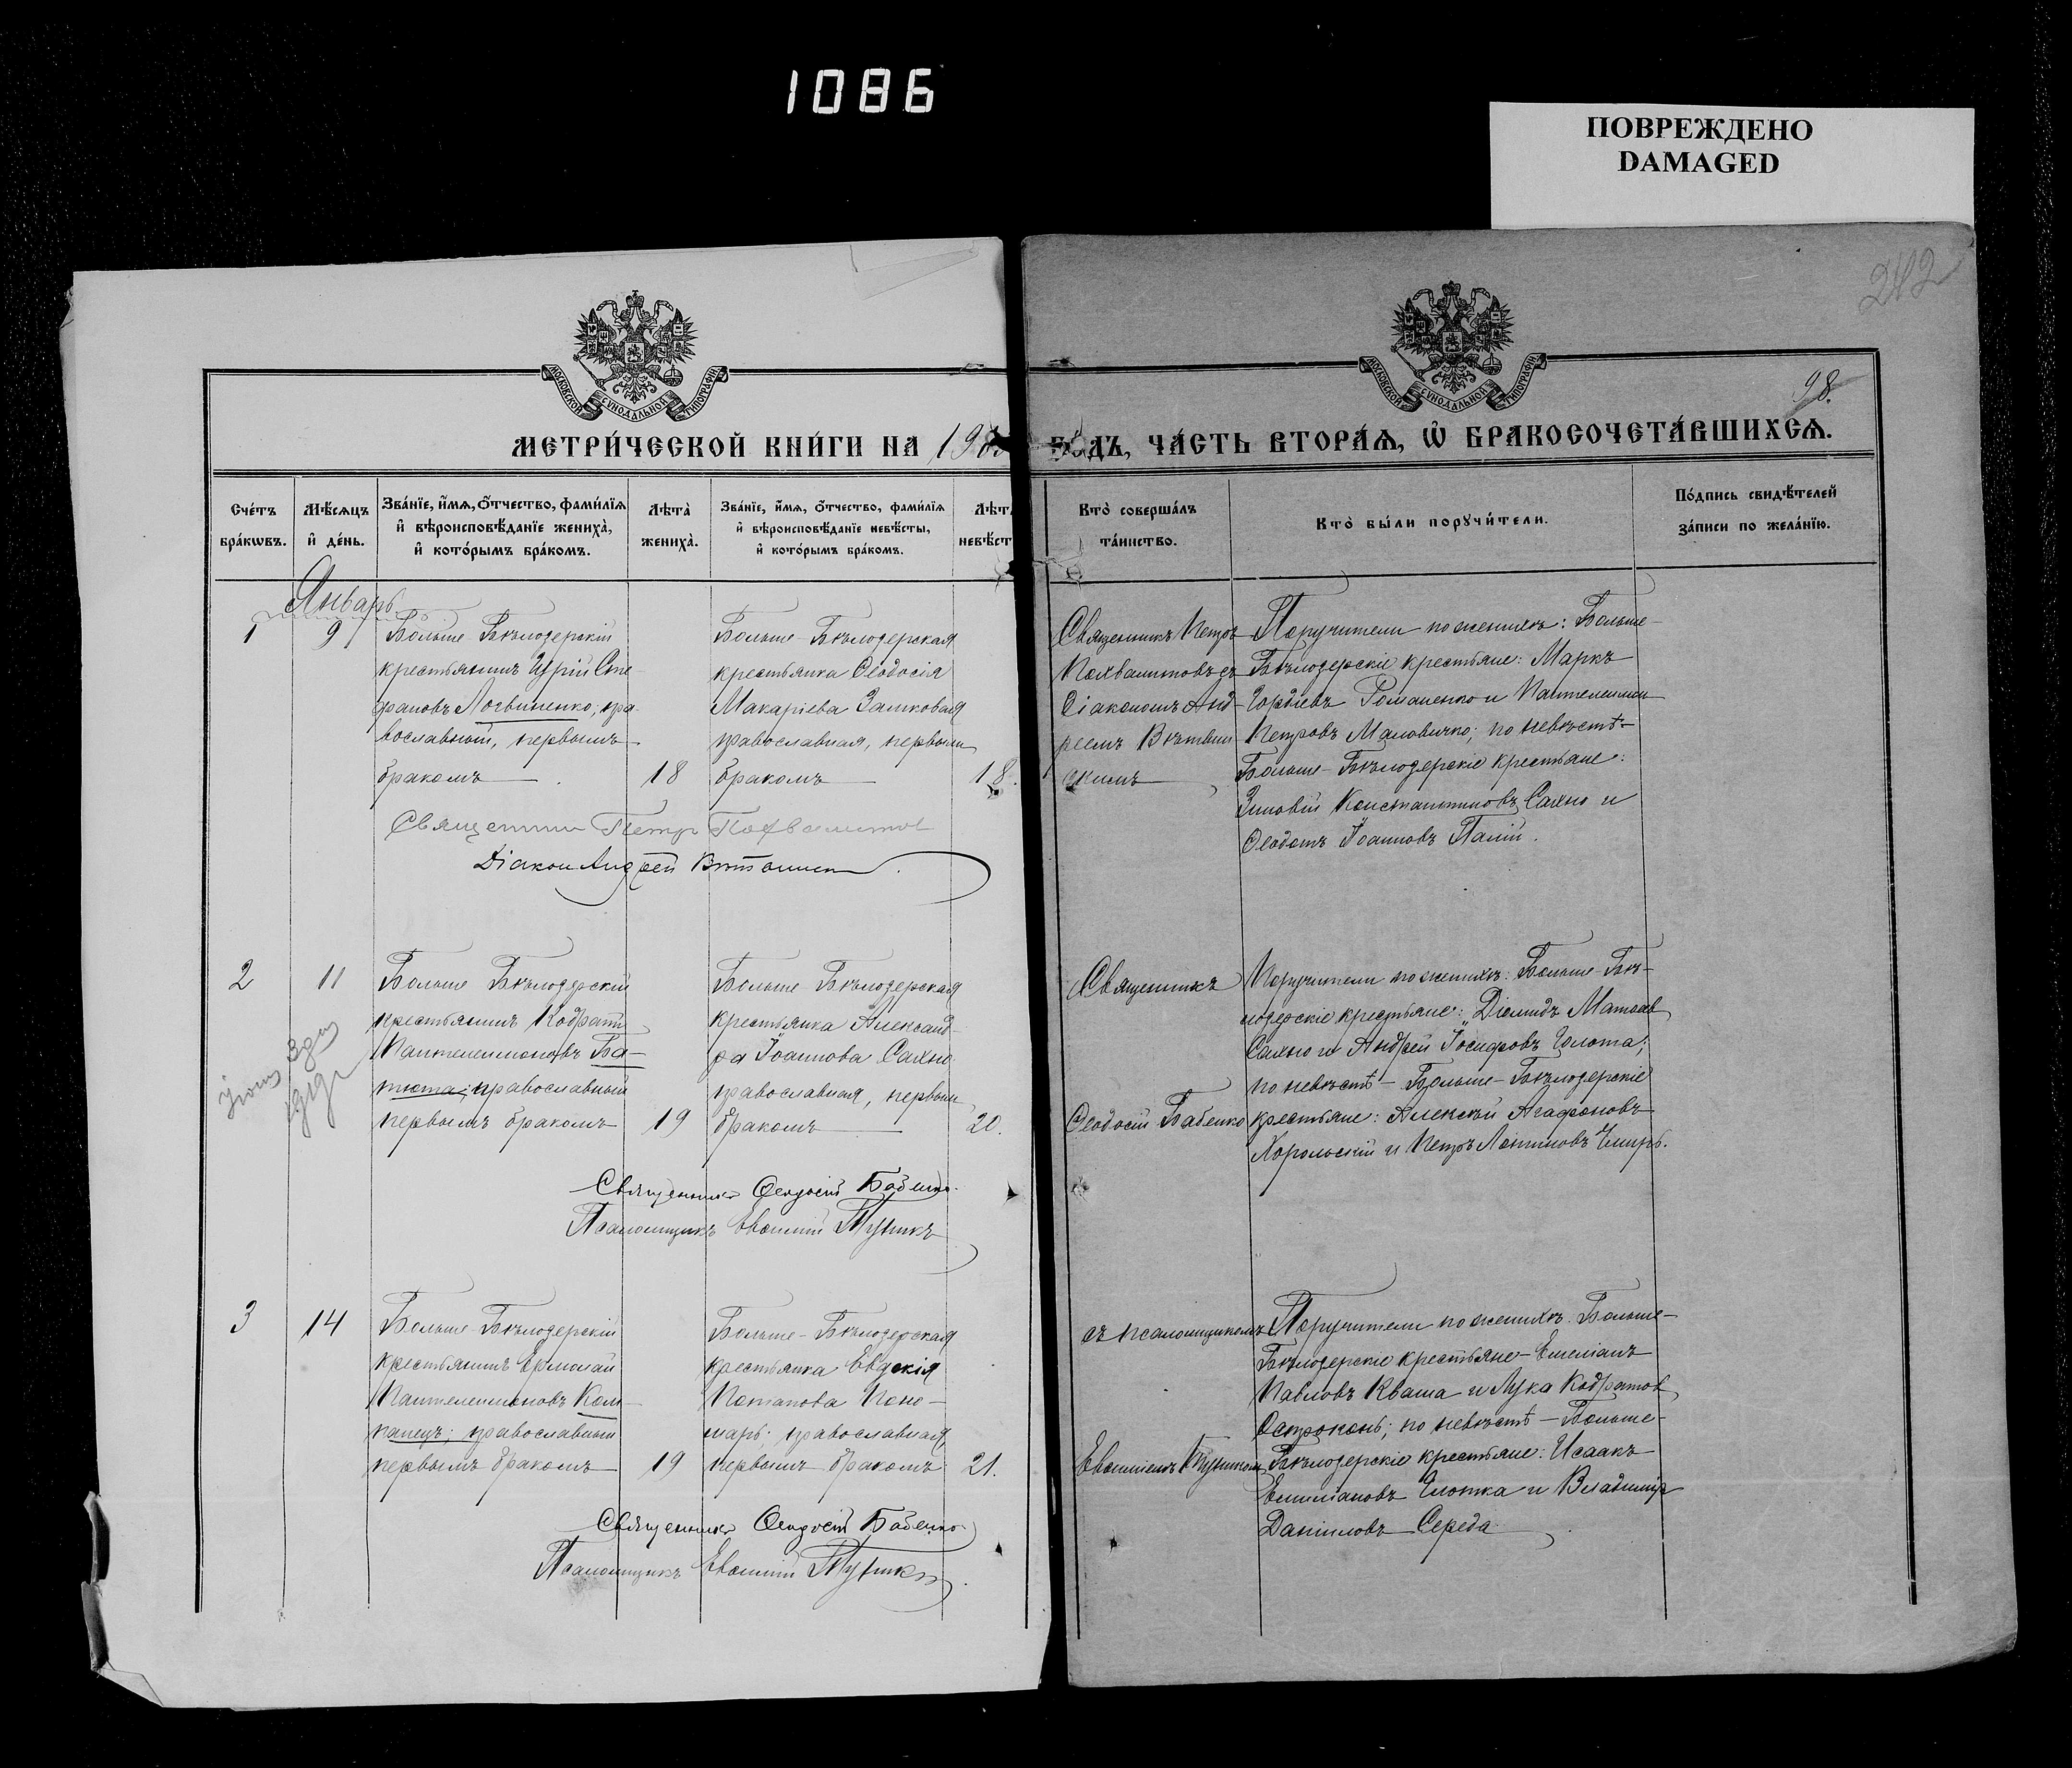 1086
ПОВРЕЖДЕНО
DAMAGED
242
98.
МОСКОВСКОЙ СѴНОДАЛЬНОЙ ТИПОГРАФІИ
МОСКОВСКОЙ СѴНОДАЛЬНОЙ ТИПОГРАФІИ
МЕТРИ́ЧЕСКОЙ КНИ́ГИ НА 190
ГОДЪ, ЧА́СТЬ ВТОРА́Ѧ, Ѡ҆ БРАКОСОЧЕТА́ВШИХСѦ.
Сче́тъ бра́кѡвъ.
Мѣ́сѧцъ и҆ де́нь.
Зва́нїе, и҆́мѧ, ѻ҆́тчество, фами́лїѧ
и҆ вѣроисповѣ́данїе жениха̀,
и҆ кото́рымъ бра́комъ.
Лѣта̀ жениха̀.
Зва́нїе, и҆́мѧ, ѻ҆́тчество, фами́лїѧ
и҆ вѣроисповѣ́данїе невѣ́сты,
и҆ кото́рымъ бра́комъ.
Лѣт
невѣ́ст
Кто̀ соверша́лъ
та́инство.
Кто̀ бы́ли порꙋчи́тели.
По́дпись свидѣ́телей
за́писи по жела́нїю.
Январь
1
9
Больше Бѣлозерскій
крестьянинъ Юрій Сте-
фановъ Логвиненко, пра
вославный, первымъ
бракомъ
18
Больше-Бѣлозерская
крестьянка Ѳеодосія
Макаріева Замковая
православная, первым
бракомъ
18.
Священникъ Петръ
Похвалитовъ съ
Діакономъ Анд-
реемъ
Поручители по женихѣ: Больше-
Бѣлозерскіе крестьяне: Маркъ
Гордіевъ Романенко и Пантелеимон
Петровъ Маловичко; по невѣстѣ-
Больше-Бѣлозерскіе крестьяне:
Зиновій Константиновъ Сахно и
Ѳеодотъ Іоанновъ Палій.
Священник Петр Похвалитов
Діакон Андрей
2
11
Больше Бѣлозерскій
крестьянинъ Кодратъ
Пантелеимоновъ Ба-
тюта, православный
первымъ бракомъ
19
Больше Бѣлозерская
крестьянка Александ-
ра Іоаннова Сахно
православная, первым
бракомъ
20.
Священникъ
Ѳеодосій Бабенко
Поручители по женихѣ: Больше-Бѣ-
лозерскіе крестьяне: Діомидъ Матѳеев
Сахно и Андрей Іосифовъ Голота;
по невѣстѣ - Больше-Бѣлозерскіе
крестьяне: Алексѣй Агафоновъ
Хорольскій и Петръ Логиновъ
Священникъ Ѳеодосій Бабенко.
Псаломщикъ Евѳимій
3
14
Больше-Бѣлозерскій
крестьянинъ Ермолай
Пантелеимоновъ Ком-
панецъ; православный
первымъ бракомъ
19
Больше-Бѣлозерская
крестьянка Евдокія
Потапова Поно-
марь; православная,
первымъ бракомъ
21.
съ псаломщикомъ
Евѳиміемъ
Поручители по женихѣ: Больше-
Бѣлозерскіе крестьяне - Емеліанъ
Павловъ Кваша и Лука Кодратов
Остроконь; по невѣстѣ - Больше-
Бѣлозерскіе крестьяне: Исаакъ
Емиліановъ и Владиміръ
Даніиловъ Середа
Священникъ Ѳеодосій Бабенко
Псаломщикъ Евѳимій